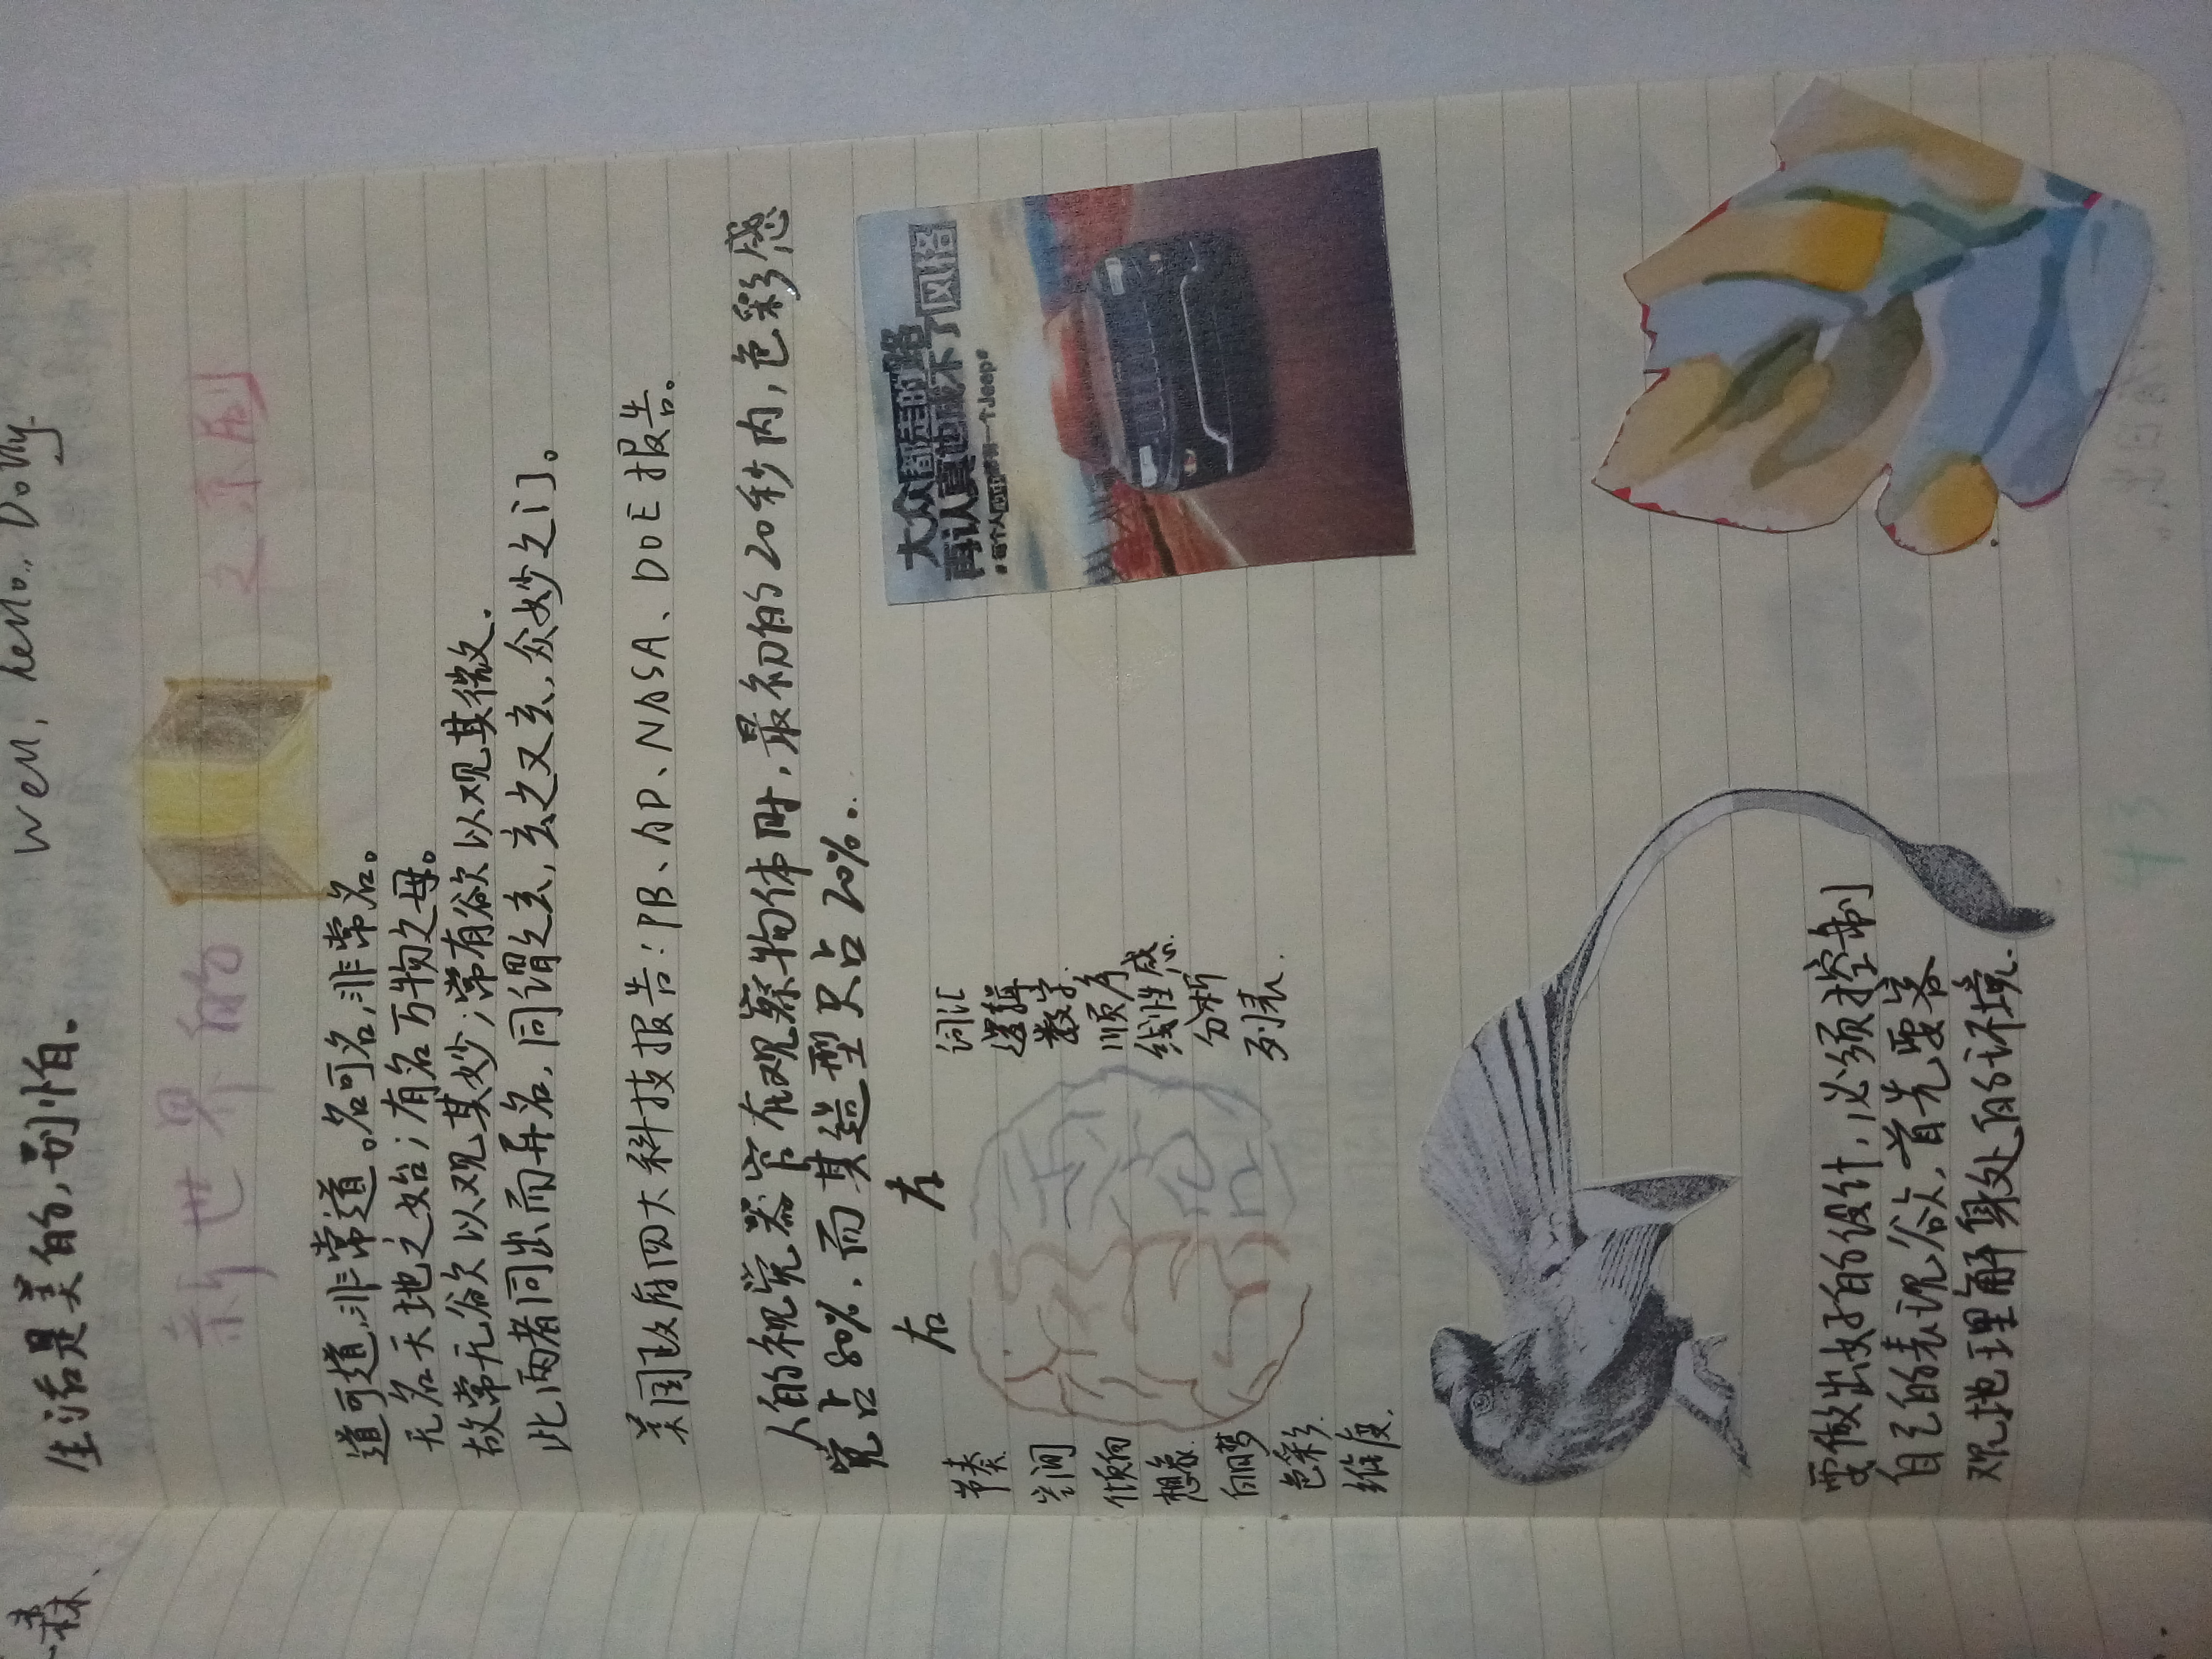 森、
生活是美的,别怕。 Well, hello, Dolly.
新世界的 之
道可道,非常道。名可名,非常名。
无名天地之始;有名万物之母。
故常无欲以观其妙;常有欲以观其微.
此两者同出而异名,同谓之玄,玄之又玄,众妙之门。
美国政府四大科技报告:PB、AD、NASA、DOE报告。
人的视觉器官在观察物体时,最初的20秒内,色彩感
觉占80%,而其造型只占20%。
右 左
节奏
空间
倾向
想象
白日梦
色彩
维度
词汇
逻辑
数字
顺序
线性感
分析
列表
大众都走的路
再认真也成不了风格
#每个人心中都有一个Jeep#
要做出好的设计,必须控制
自己的表现欲,首先要客
观地理解身处的环境.
43